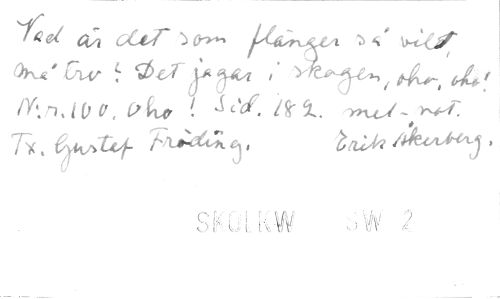 Vad är det som flänger så vilt,
må tro? Det jagar i skogen, oho, oho!
N:r. 100. Oho! Sid. 182. mel-not.
Tx. Gustef Fröding. Erik Åkerberg.
SKOLKW SW 2